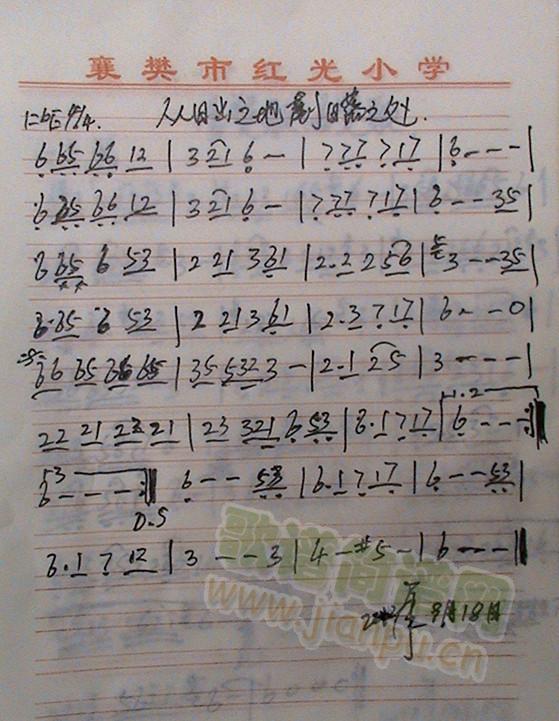 襄樊市红光小学
1=bE 4/4. 从日出之地到日落之处.
6 65 66 12 | 3 21 6 - | 7 77 7 17 | 6 - - - |
6 65 66 12 | 3 21 6 - | 7 77 7 17 | 6 - - 35 |
6 65 6 53 | 2 21 3 61 | 2·2 2 56 | 3 - - 35 |
6·65 6 53 | 2 21 3 61 | 2·3 7 17 | 6 - - 0 |
66 65 66 65 | 35 532 3 - | 2·1 25 | 3 - - - |
22 21 23 21 | 23 321 6 53 | 6·1 7 17 | 1.2 6 - - - :|
3 6 - - - :| 6 - - 53 | 6·1 7 17 | 6 - - 53 |
D.S
6·1 7 12 | 3 - - 3 | 4 - #5 - | 6 - - - ||
9月18日
歌谱简谱网
www.jianpu.cn